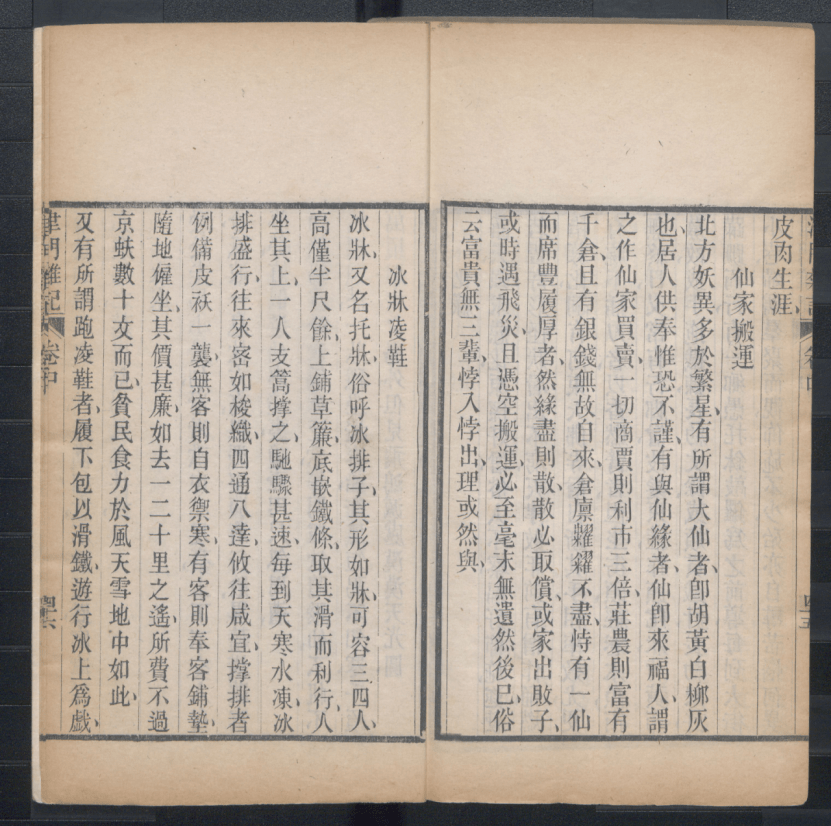 津門雜記 卷中 四五
皮肉生涯、
仙家搬運
北方妖異多於繁星、有所謂大仙者、卽胡黃白柳灰
也、居人供奉惟恐不謹、有與仙緣者、仙卽來福人、謂
之作仙家買賣、一切商賈則利市三倍、莊農則富有
千倉、且有銀錢無故自來、倉廩糶糴不盡、恃有一仙
而席豐履厚者、然緣盡則散、散必取償、或家出敗子、
或時遇飛災、且憑空搬運、必至毫末無遺然後已、俗
云富貴無三輩、悖入悖出、理或然與、
冰牀凌鞋
冰牀又名托牀、俗呼冰排子、其形如牀、可容三四人、
高僅半尺餘、上鋪草簾、底嵌鐵條、取其滑而利行、人
坐其上、一人支篙撑之、馳驟甚速、每到天寒水凍、冰
排盛行、往來密如梭織、四通八達、攸往咸宜、撑排者
例備皮袄一襲、無客則自衣禦寒、有客則奉客鋪墊、
隨地僱坐、其價甚廉、如去一二十里之遙、所費不過
京蚨數十文而已、貧民食力於風天雪地中如此、
又有所謂跑凌鞋者、履下包以滑鐵、遊行冰上爲戲、
津門雜記 卷中 四六